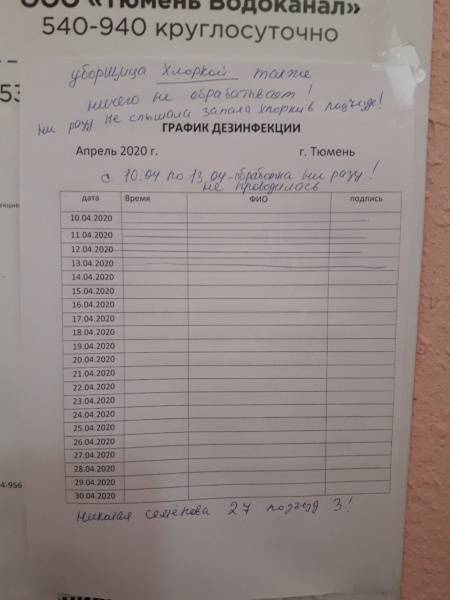 ООО «Тюмень Водоканал»
540-940 круглосуточно
уборщица Хлоркой также
ничего не обрабатывает!
Ни разу не слышала запаха хлорки в подъезде!
ГРАФИК ДЕЗИНФЕКЦИИ
Апрель 2020 г. г. Тюмень
с 10.04 по 13.04 обработка ни разу!
не проводилась
дата Время ФИО подпись
10.04.2020
11.04.2020
12.04.2020
13.04.2020
14.04.2020
15.04.2020
16.04.2020
17.04.2020
18.04.2020
19.04.2020
20.04.2020
21.04.2020
22.04.2020
23.04.2020
24.04.2020
25.04.2020
26.04.2020
27.04.2020
28.04.2020
29.04.2020
30.04.2020
4-956
Николая Семёнова 27 подъезд 3!